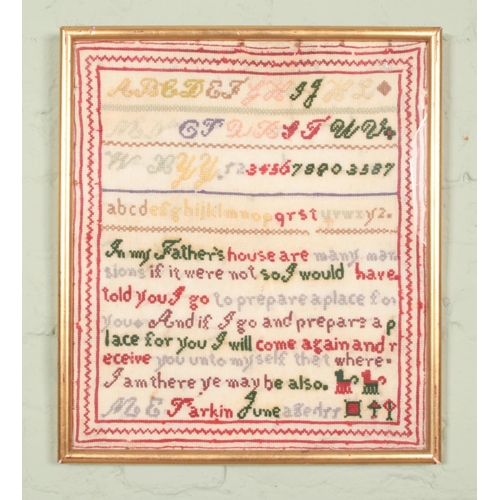 ABCDEFGHIJKL
MNOPQRSTUV
WXYZ. 1234567890 3587
abcdefghijklmnopqrstuvwxyz.
In my Father's house are many man
sions if it were not so I would have
told you I go to prepare a place for
you And if I go and prepare a p
lace for you I will come again and r
eceive you unto myself that where
I am there ye may be also.
M E Parkin June aged